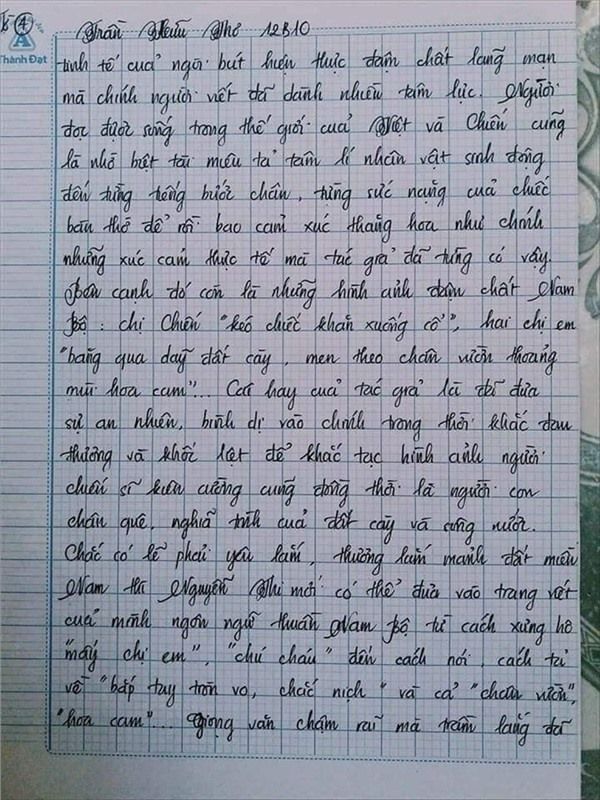 4
Thành Đạt
Trần Hữu Nhơ 12B10
tinh tế của ngòi bút hiện thực đậm chất lãng mạn
mà chính người viết đã dành nhiều tâm lực. Người
đọc được sống trong thế giới của Việt và Chiến cũng
là nhờ biệt tài miêu tả tâm lí nhân vật sinh động
đến từng tiếng bước chân, từng sức nặng của chiếc
bàn thờ để rồi bao cảm xúc thăng hoa như chính
những xúc cảm thực tế mà tác giả đã từng có vậy.
Bên cạnh đó còn là những hình ảnh đậm chất Nam
Bộ : chị Chiến "kéo chiếc khăn xuống cổ", hai chị em
"băng qua dãy đất cày, men theo chân vườn thoảng
mùi hoa cam"... Cái hay của tác giả là đã đưa
sự an nhiên, bình dị vào chính trong thời khắc đau
thương và khốc liệt để khắc tạc hình ảnh người
chiến sĩ kiên cường cũng đồng thời là người con
chân quê, nghĩa tình của đất cày và ruộng nước.
Chắc có lẽ phải yêu lắm, thương lắm mảnh đất miền
Nam thì Nguyễn Thi mới có thể đưa vào trang viết
của mình ngôn ngữ thuần Nam Bộ từ cách xưng hô
"mấy chị em", "chú cháu" đến cách nói, cách tả
về "bắp tay tròn vo, chắc nịch" và cả "chân vườn",
"hoa cam"... Giọng văn chậm rãi mà trầm lắng đã